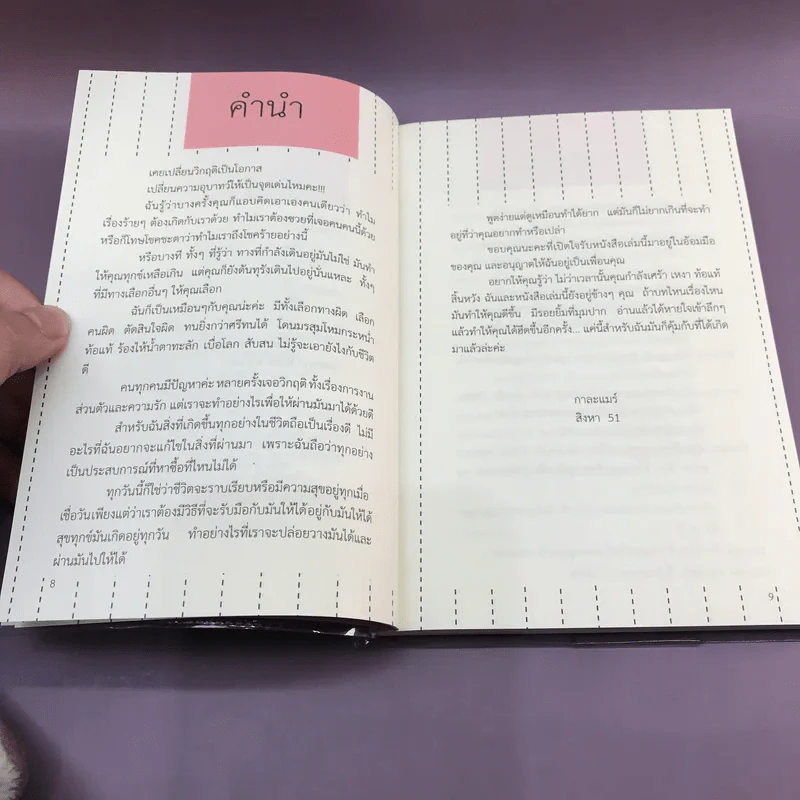 คำนำ
เคยเปลี่ยนวิกฤติเป็นโอกาส
เปลี่ยนความอุบาทว์ให้เป็นจุดเด่นไหมคะ!!!
ฉันรู้ว่าบางครั้งคุณก็แอบคิดเอาเองคนเดียวว่า ทำไม
เรื่องร้ายๆ ต้องเกิดกับเราด้วย ทำไมเราต้องซวยที่เจอคนคนนี้ด้วย
หรือก็โทษโชคชะตาว่าทำไมเราถึงโชคร้ายอย่างนี้
หรือบางที ทั้งๆ ที่รู้ว่า ทางที่กำลังเดินอยู่มันไม่ใช่ มันทำ
ให้คุณทุกข์เหลือเกิน แต่คุณก็ยังดันทุรังเดินไปอยู่นั่นแหละ ทั้งๆ
ที่มีทางเลือกอื่นๆ ให้คุณเลือก
ฉันก็เป็นเหมือนๆกับคุณน่ะค่ะ มีทั้งเลือกทางผิด เลือก
คนผิด ตัดสินใจผิด ทนยิ่งกว่าศรีทนได้ โดนมรสุมโหมกระหน่ำ
ท้อแท้ ร้องไห้น้ำตาทะลัก เบื่อโลก สับสน ไม่รู้จะเอายังไงกับชีวิต
ดี
คนทุกคนมีปัญหาค่ะ หลายครั้งเจอวิกฤติ ทั้งเรื่องการงาน
ส่วนตัวและความรัก แต่เราจะทำอย่างไรเพื่อให้ผ่านมันมาได้ด้วยดี
สำหรับฉันสิ่งที่เกิดขึ้นทุกอย่างในชีวิตถือเป็นเรื่องดี ไม่มี
อะไรที่ฉันอยากจะแก้ไขในสิ่งที่ผ่านมา เพราะฉันถือว่าทุกอย่าง
เป็นประสบการณ์ที่หาซื้อที่ไหนไม่ได้
ทุกวันนี้ก็ใช่ว่าชีวิตจะราบเรียบหรือมีความสุขอยู่ทุกเมื่อ
เชื่อวันเพียงแต่ว่าเราต้องมีวิธีที่จะรับมือกับมันให้ได้ อยู่กับมันให้ได้
สุขทุกข์มันเกิดอยู่ทุกวัน ทำอย่างไรที่เราจะปล่อยวางมันได้และ
ผ่านมันไปให้ได้
8
พูดง่ายแต่ดูเหมือนทำได้ยาก แต่มันก็ไม่ยากเกินที่จะทำ
อยู่ที่ว่าคุณอยากทำหรือเปล่า
ขอบคุณนะคะที่เปิดใจรับหนังสือเล่มนี้มาอยู่ในอ้อมมือ
ของคุณ และอนุญาตให้ฉันอยู่เป็นเพื่อนคุณ
อยากให้คุณรู้ว่า ไม่ว่าเวลานั้นคุณกำลังเศร้า เหงา ท้อแท้
สิ้นหวัง ฉันและหนังสือเล่มนี้ยังอยู่ข้างๆ คุณ ถ้าบทไหนเรื่องไหน
มันทำให้คุณดีขึ้น มีรอยยิ้มที่มุมปาก อ่านแล้วได้หายใจเข้าลึกๆ
แล้วทำให้คุณได้ฮึดขึ้นอีกครั้ง... แค่นี้สำหรับฉันมันก็คุ้มกับที่ได้เกิด
มาแล้วล่ะค่ะ
กาละแมร์
สิงหา 51
9